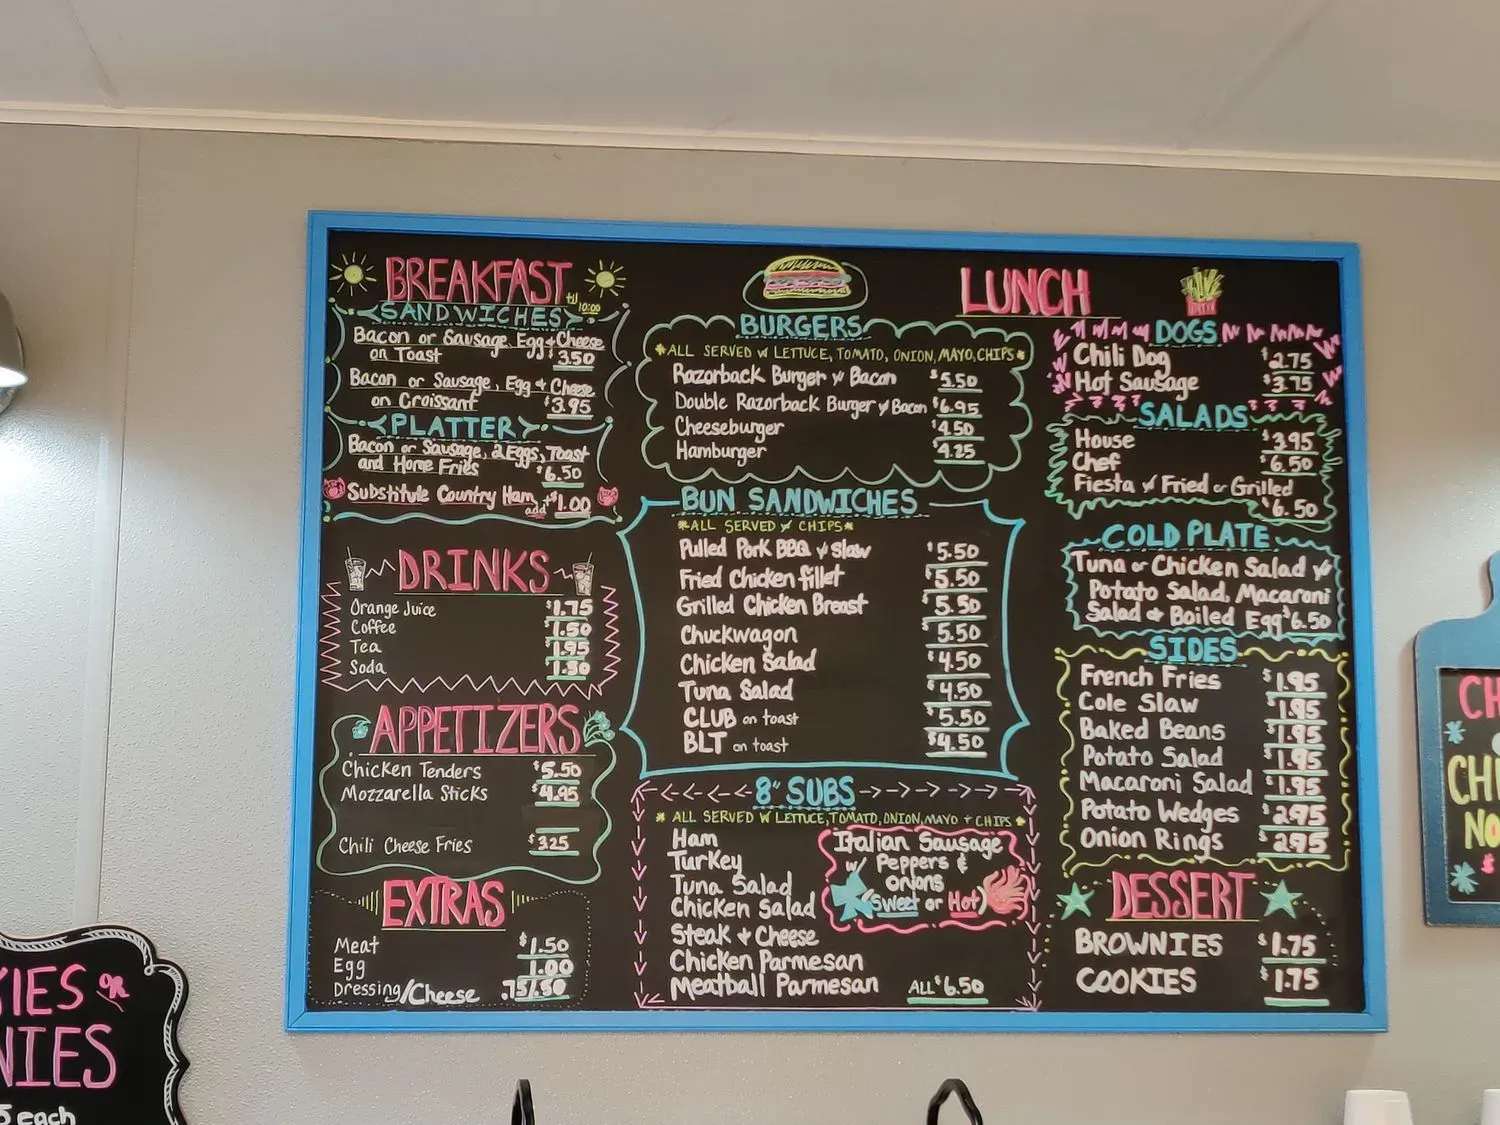 BREAKFAST til 10:00
SANDWICHES
Bacon or Sausage, Egg + Cheese
on Toast $3.50
Bacon or Sausage, Egg + Cheese
on Croissant $3.95
PLATTER
Bacon or Sausage, 2 Eggs, Toast
and Home Fries $6.50
Substitute Country Ham add +$1.00
DRINKS
Orange Juice $1.75
Coffee $1.50
Tea $1.95
Soda $1.50
APPETIZERS
Chicken Tenders $5.50
Mozzarella Sticks $4.95
Chili Cheese Fries $3.25
EXTRAS
Meat $1.50
Egg 1.00
Dressing/Cheese .75/.50
LUNCH
BURGERS
*ALL SERVED W LETTUCE, TOMATO, ONION, MAYO, CHIPS*
Razorback Burger w Bacon $5.50
Double Razorback Burger w Bacon $6.95
Cheeseburger $4.50
Hamburger $4.25
BUN SANDWICHES
*ALL SERVED w CHIPS*
Pulled Pork BBQ w slaw $5.50
Fried Chicken fillet $5.50
Grilled Chicken Breast $5.50
Chuckwagon $5.50
Chicken Salad $4.50
Tuna Salad $4.50
CLUB on toast $5.50
BLT on toast $4.50
8" SUBS
* ALL SERVED W LETTUCE, TOMATO, ONION, MAYO + CHIPS *
Ham
Turkey
Tuna Salad
Chicken Salad
Steak + Cheese
Chicken Parmesan
Meatball Parmesan ALL $6.50
Italian Sausage
w/ Peppers &
onions
(Sweet or Hot)
DOGS
Chili Dog $2.75
Hot Sausage $3.75
SALADS
House $3.95
Chef $6.50
Fiesta w Fried or Grilled
$6.50
COLD PLATE
Tuna or Chicken Salad w
Potato Salad, Macaroni
Salad + Boiled Egg $6.50
SIDES
French Fries $1.95
Cole Slaw $1.95
Baked Beans $1.95
Potato Salad $1.95
Macaroni Salad $1.95
Potato Wedges $2.95
Onion Rings $2.95
DESSERT
BROWNIES $1.75
COOKIES $1.75
KIES OR
NIES
5 each
CH
CHI
NO
$